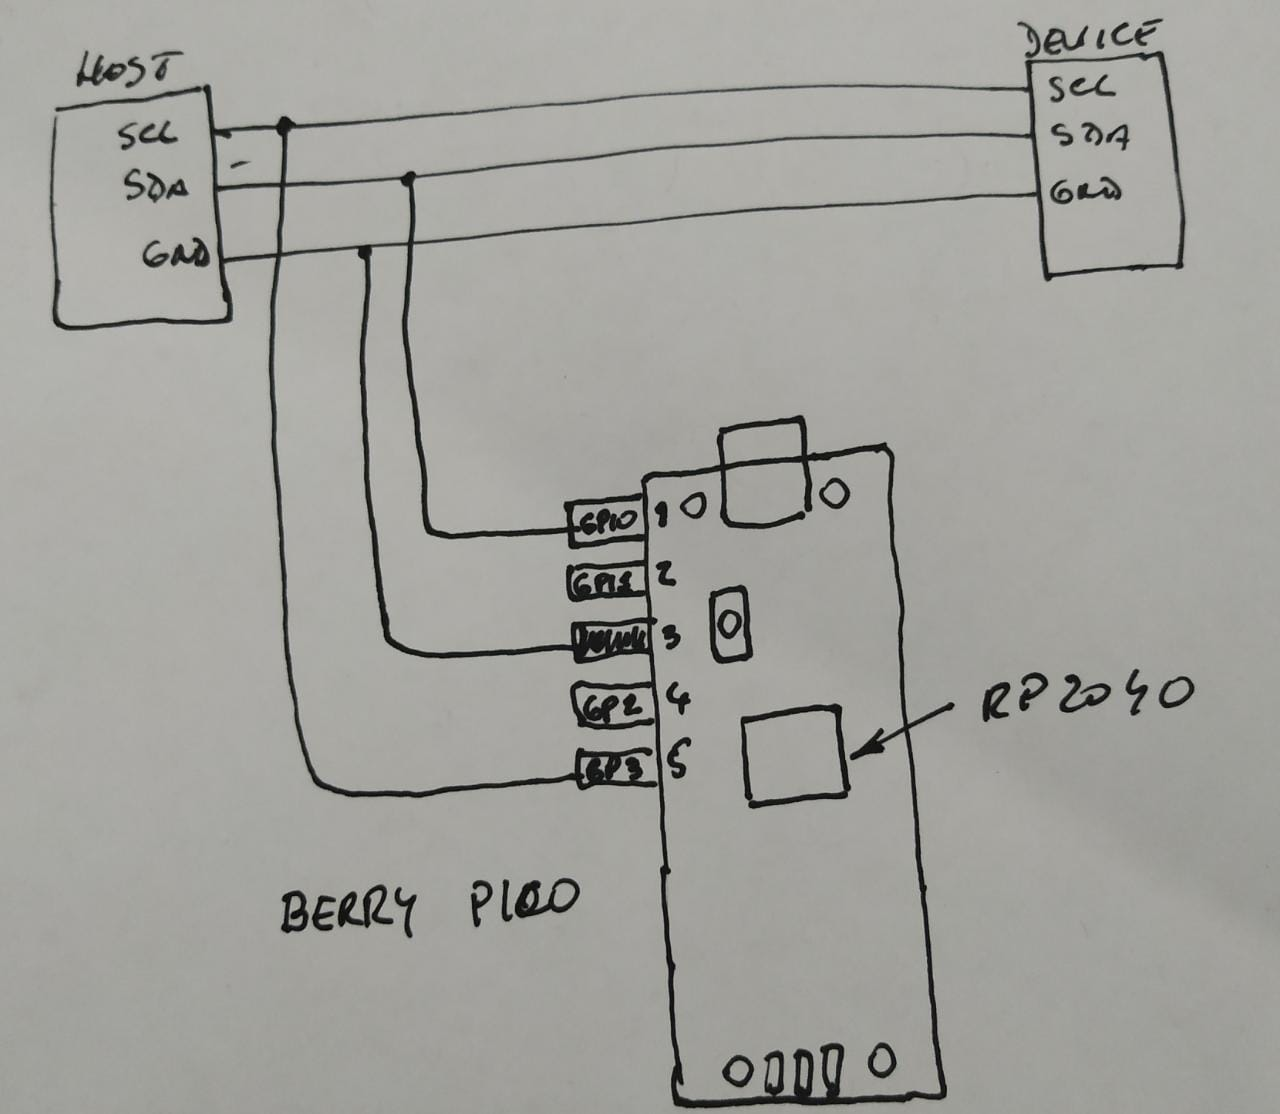 HOST
SCL
SDA
GND
DEVICE
SCL
SDA
GND
GPIO 1
2
3
GP2 4
GP3 5
RP2040
BERRY